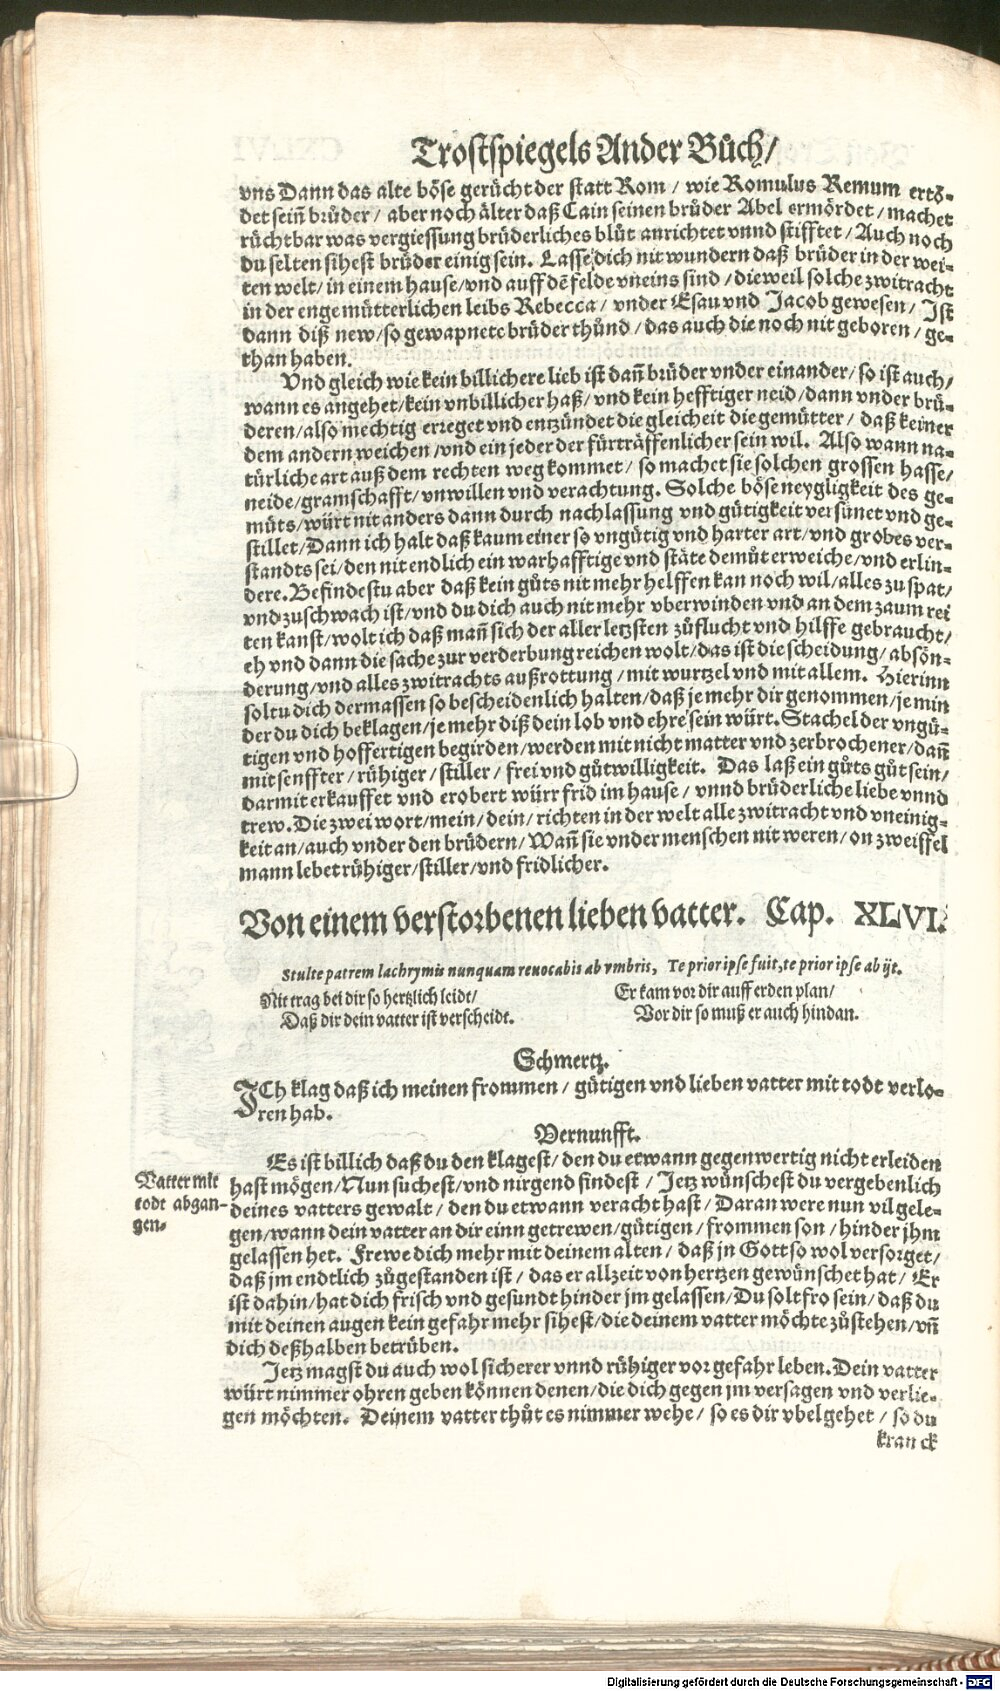 Trostspiegels Ander Bůch/
vns Dann das alte böse gerücht der statt Rom / wie Romulus Remum ertö-
det sein̄ brůder / aber noch älter daß Cain seinen brůder Abel ermördet / machet
rüchtbar was vergiessung brüderliches blůt anrichtet vnnd stifftet / Auch noch
du selten sihest brüder einig sein. Lasse dich nit wundern daß brüder in der wei-
ten welt / in einem hause / vnd auff dē felde vneins sind / die weil solche zwitracht
in der enge mütterlichen leibs Rebecca / vnder Esau vnd Jacob gewesen / Ist
dann diß new / so gewapnete brüder thůnd / das auch die noch nit geboren / ge-
than haben.
Vnd gleich wie kein billichere lieb ist dañ brüder vnder einander / so ist auch /
wann es angehet / kein vnbillicher haß / vnd kein hefftiger neid / dann vnder brü-
deren / also mechtig erreget vnd entzündet die gleicheit die gemütter / daß keiner
dem andern weichen / vnd ein jeder der fürträffenlicher sein wil. Also wann na-
türliche art auß dem rechten weg kommet / so machet sie solchen grossen hasse /
neide / gramschafft / vnwillen vnd verachtung. Solche böse neygligkeit des ge-
müts / würt nit anders dann durch nachlassung vnd gütigkeit versünet vnd ge-
stillet / Dann ich halt daß kaum einer so vngütig vnd harter art / vnd grobes ver-
standts sei / den nit endlich ein warhafftige vnd stäte demůt erweiche / vnd erlin-
dere. Befindestu aber daß kein gůts nit mehr helffen kan noch wil / alles zu spat /
vnd zu schwach ist / vnd du dich auch nit mehr vberwinden vnd an dem zaum rei
ten kanst / wolt ich daß mañ sich der aller letzsten zůflucht vnd hilffe gebraucht /
eh vnd dann die sache zur verderbung reichen wolt / das ist die scheidung / absön-
derung / vnd alles zwitrachts außrottung / mit wurtzel vnd mit allem. Hierinn
soltu dich dermassen so bescheidenlich halten / daß je mehr dir genommen / je min
der du dich beklagen / je mehr diß dein lob vnd ehre sein würt. Stachel der vngü-
tigen vnd hoffertigen begirden / werden mit nicht matter vnd zerbrochener / dañ
mit senffter / rühiger / stiller / frei vnd gůtwilligkeit. Das laß ein gůts gůt sein /
darmit erkauffet vnd erobert würr frid im hause / vnnd brüderliche liebe vnnd
trew. Die zwei wort / mein / dein / richten in der welt alle zwitracht vnd vneinig-
keit an / auch vnder den brüdern / Wañ sie vnder menschen nit weren / on zweiffel
mann lebet rühiger / stiller / vnd fridlicher.
Von einem verstorbenen lieben vatter. Cap. XLVI.
Stulte patrem lachrymis nunquam reuocabis ab vmbris, Te prior ipse fuit, te prior ipse abijt.
Nit trag bei dir so hertzlich leidt /
Daß dir dein vatter ist verscheidt.
Er kam vor dir auff erden plan /
Vor dir so muß er auch hindan.
Schmertz.
ICh klag daß ich meinen frommen / gütigen vnd lieben vatter mit todt verlo-
ren hab.
Vernunfft.
Vatter mit
todt abgan-
gen.
Es ist billich daß du den klagest / den du etwann gegenwertig nicht erleiden
hast mögen / Nun suchest / vnd nirgend findest / Jetz wünschest du vergebenlich
deines vatters gewalt / den du etwann veracht hast / Daran were nun vil gele-
gen / wann dein vatter an dir einn getrewen / gütigen / frommen son / hinder jhm
gelassen het. Frewe dich mehr mit deinem alten / daß jn Gott so wol versorget /
daß jm endtlich zůgestanden ist / das er allzeit von hertzen gewünschet hat / Er
ist dahin / hat dich frisch vnd gesundt hinder jm gelassen / Du solt fro sein / daß du
mit deinen augen kein gefahr mehr sihest / die deinem vatter möchte zůstehen / vñ
dich deßhalben betrüben.
Jetz magst du auch wol sicherer vnnd rühiger vor gefahr leben. Dein vatter
würt nimmer ohren geben können denen / die dich gegen jm versagen vnd verlie-
gen möchten. Deinem vatter thůt es nimmer wehe / so es dir vbel gehet / so du
kranck
Digitalisierung gefördert durch die Deutsche Forschungsgemeinschaft - DFG